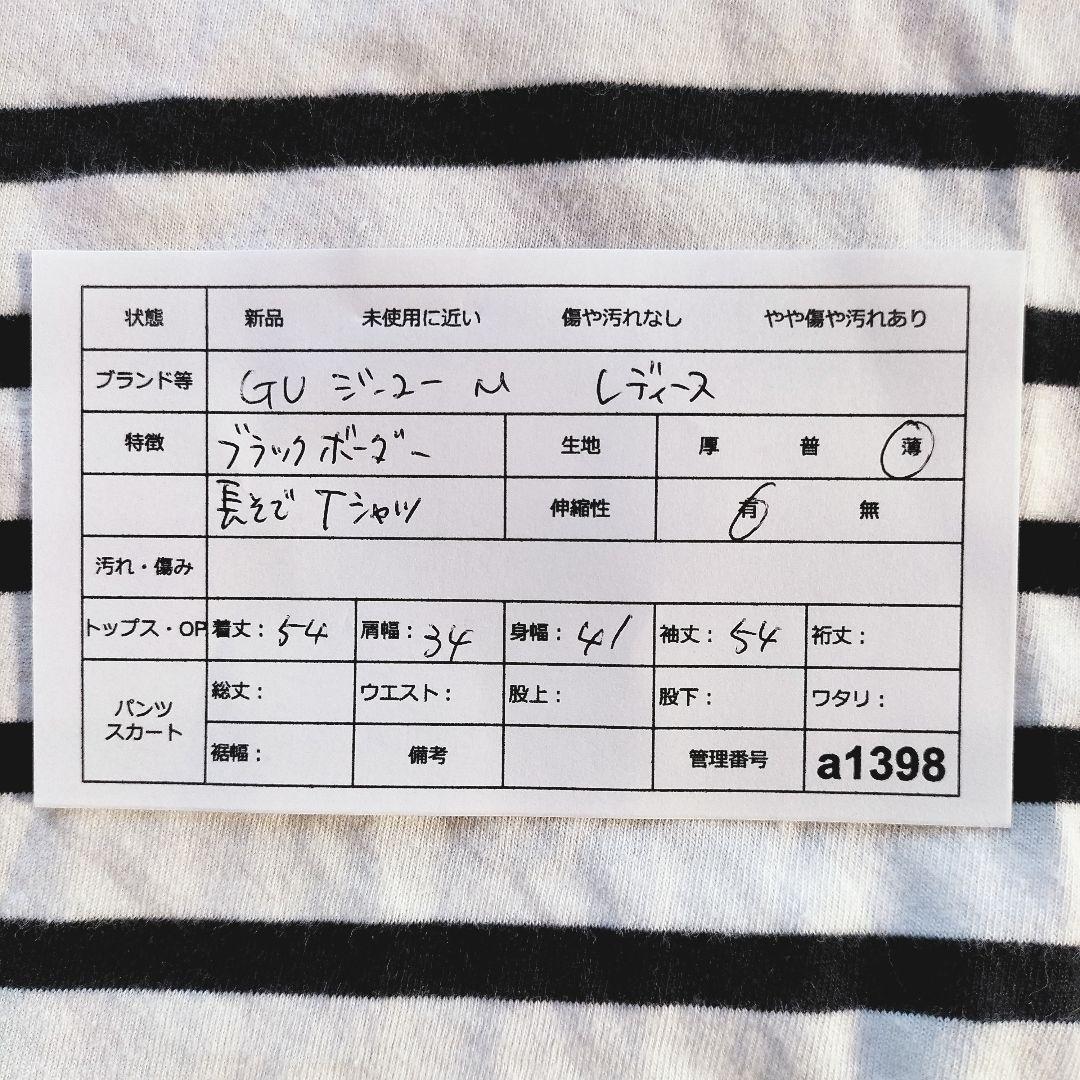 状態 新品 未使用に近い 傷や汚れなし やや傷や汚れあり
ブランド等 GU ジーユー M レディース
特徴 ブラックボーダー 生地 厚 普 薄
長そで Tシャツ 伸縮性 有 無
汚れ・傷み
トップス・OP 着丈：54 肩幅：34 身幅：41 袖丈：54 裄丈：
パンツ
スカート
総丈： ウエスト： 股上： 股下： ワタリ：
裾幅： 備考 管理番号 a1398